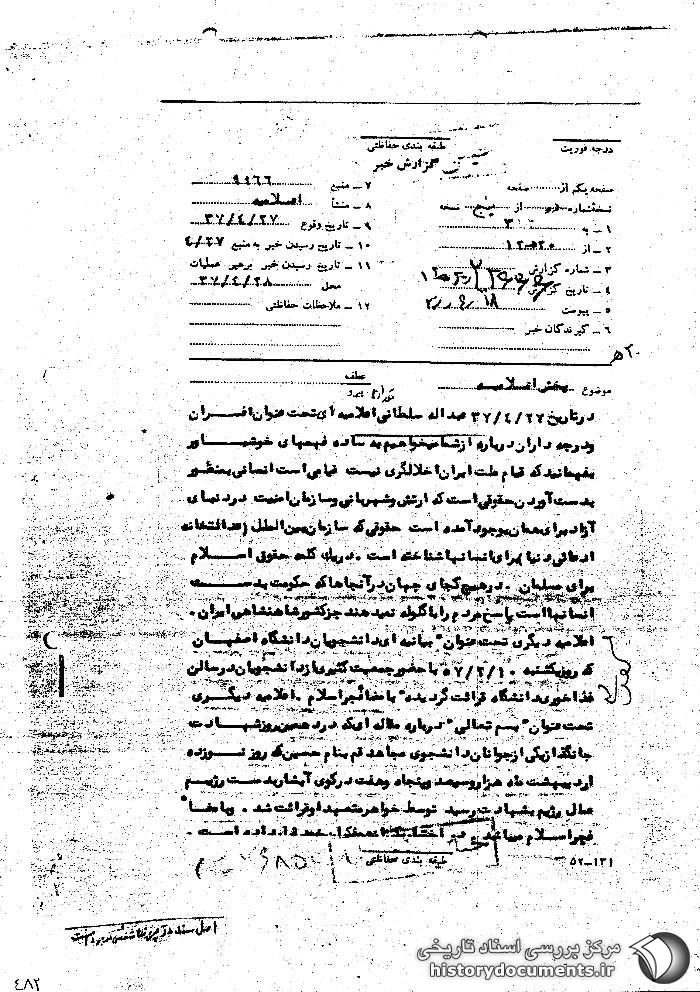 درجه فوریت
طبقه بندی حفاظتی
گزارش خبر
صفحه یکم از صفحه
نسخه شماره از پنج نسخه
۱ ـ به ۳۰۰
۲ ـ از
۳ ـ شماره گزارش
۴ ـ تاریخ گزارش
۵ ـ پیوست
۶ ـ گیرندگان خبر
۷ ـ منبع ۹۱۶۶
۸ ـ منشأ اعلامیه
۹ ـ تاریخ وقوع ۳۷/۴/۲۷
۱۰ ـ تاریخ رسیدن خبر به منبع ۴/۲۷
۱۱ ـ تاریخ رسیدن خبر برهبر عملیات
محل ۳۷/۴/۲۸
۱۲ ـ ملاحظات حفاظتی
۲۰ ه
موضوع پخش اعلامیه
عطف
در تاریخ ۳۷/۴/۲۷ عبداله سلطانی اعلامیه ای تحت عنوان افسران
ودرجه داران درباره ازشما میخواهیم به ساده فهمهای خوشباور
بفهمانید که قیام ملت ایران اخلالگری نیست قیامی است انسانی بمنظور
بدست آوردن حقوقی است که ارتش وشهربانی وسازمان امنیت در دنیای
آزاد برای همان بوجود آمده است حقوقی که سازمان بین الملل
ادعائی دنیا برای انسانها شناخته است . دریک کلمه حقوقی اسلام
برای مسلمان . درهیچ کجای جهان در آنجاها که حکومت بدست
انسانها است پاسخ مردم را با گلوله نمیدهند جز کشور شاهنشاهی ایران .
اعلامیه دیگری تحت عنوان " بیانه ای دانشجویان دانشگاه اصفهان
که روز یکشنبه ۵۷/۲/۱۰ با حضور جمعیت کثیری از دانشجویان در سالن
غذاخوری دانشگاه قرائت گردیده " با امضا فجر اسلام . اعلامیه دیگری
تحت عنوان " بسم تعالی " درباره مقاله ای که در دهمین روز شهادت
جانگداز یکی از جوانان دانشجوی مجاهد قم بنام حسین که روز نوزده
اردیبهشت ماه هزار و سیصد و پنجاه وهفت در کوی آبشار بدست رژیم
عمال رژیم بشهادت رسید توسط خواهر شهید او قرائت شد . وبامضا "
فجر اسلام میباشد در اختیار داده است .
طبقه بندی حفاظتی
۵۲-۱۳۱
اصل سند در آرشیو نمایشی موجود است
۴۸۲
مرکز بررسی اسناد تاریخی
historydocuments.ir